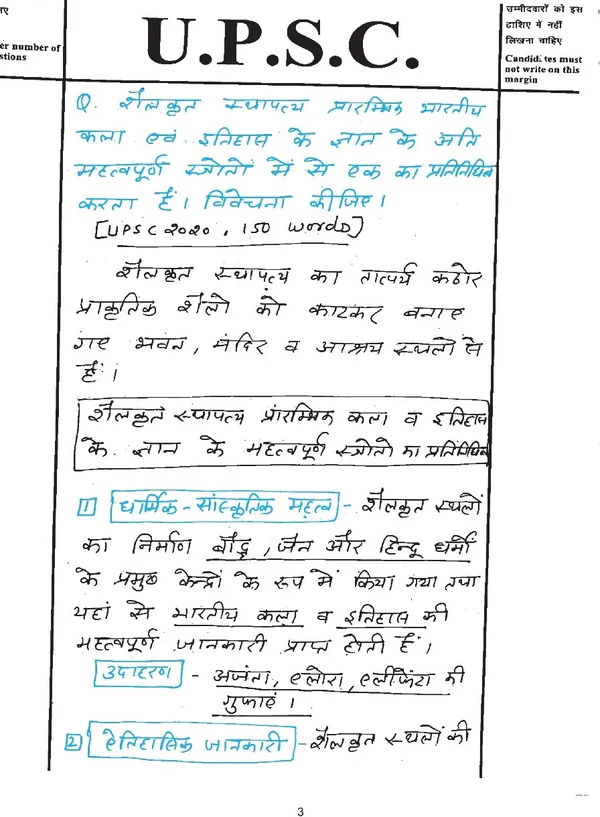 ए
er number of
stions
U.P.S.C.
उम्मीदवारों को इस
हाशिए में नहीं
लिखना चाहिए
Candidates must
not write on this
margin
Q. शैलकृत स्थापत्य प्रारम्भिक भारतीय
कला एवं इतिहास के ज्ञान के अति
महत्वपूर्ण स्त्रोतों में से एक का प्रतिनिधित्व
करता है। विवेचना कीजिए।
[UPSC 2020, 150 words]
शैलकृत स्थापत्य का तात्पर्य कठोर
प्राकृतिक शैलो को काटकर बनाए
गए भवन, मंदिर व आश्रय स्थलों से
हैं।
शैलकृत स्थापत्य प्रांरम्भिक कला व इतिहास
के ज्ञान के महत्वपूर्ण स्त्रोतो का प्रतिनिधित्व
1 धार्मिक-सांस्कृतिक महत्व - शैलकृत स्थलों
का निर्माण बौद्ध, जैन और हिन्दू धर्मों
के प्रमुख केन्द्रों के रूप में किया गया तथा
यहां से भारतीय कला व इतिहास की
महत्वपूर्ण जानकारी प्राप्त होती हैं।
उदाहरण - अजंता, एलोरा, एलीफेंटा की
गुफाएं।
2 ऐतिहासिक जानकारी - शैलकृत स्थलों की
3